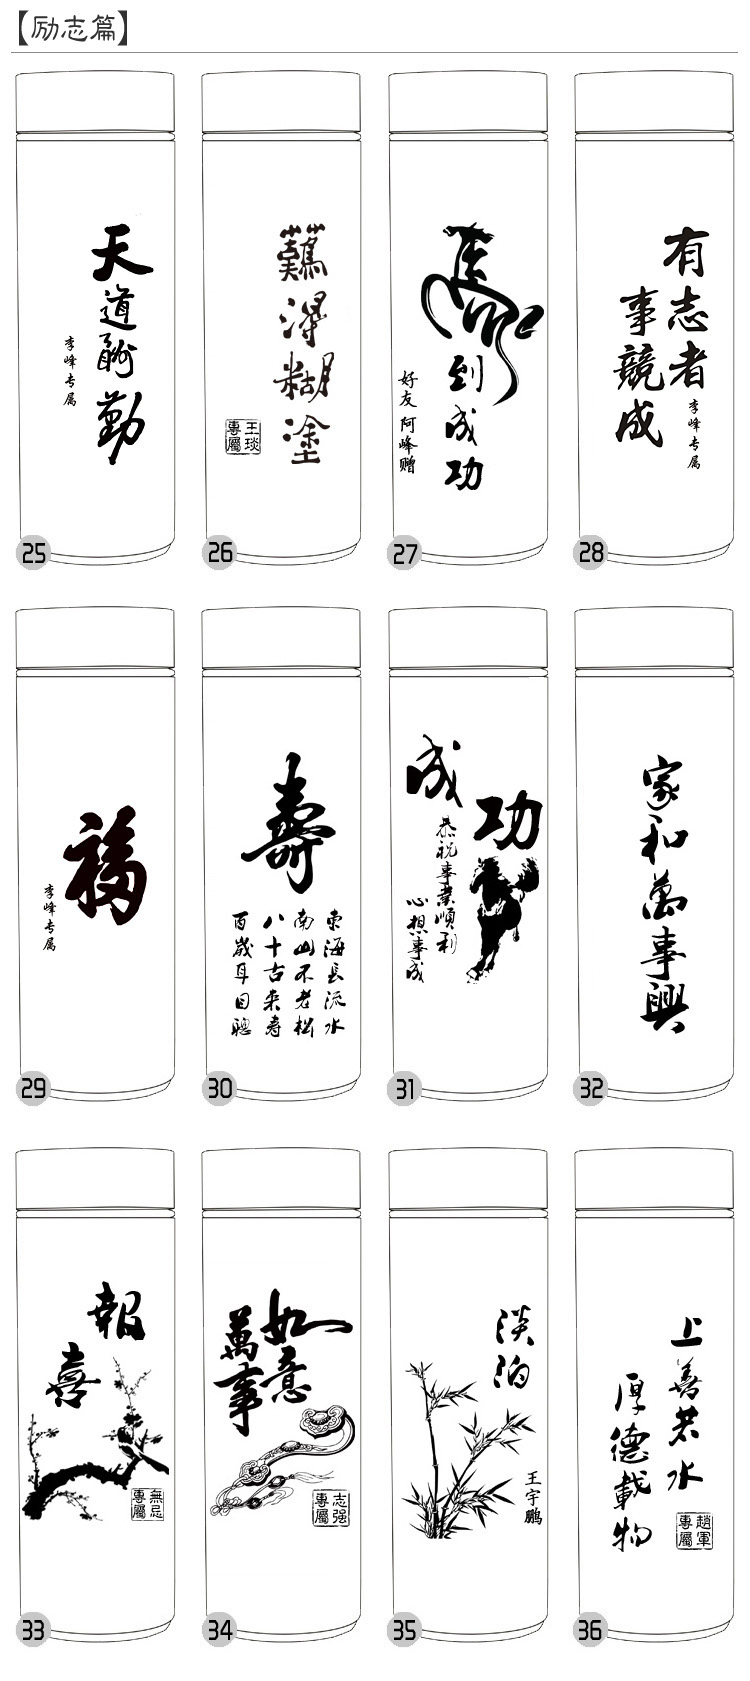 【励志篇】
天道酬勤
李峰专属
25
難得糊塗
王琰
專屬
26
馬到成功
好友 阿峰赠
27
有志者
事競成
李峰专属
28
福
李峰专属
29
壽
东海长流水
南山不老松
八十古来寿
百歲耳目聰
30
成功
恭祝事業順利
心想事成
31
家和萬事興
32
報喜
無忌
專屬
33
如意
萬事
志强
專屬
34
淡泊
王宇鹏
35
上善若水
厚德載物
趙軍
專屬
36